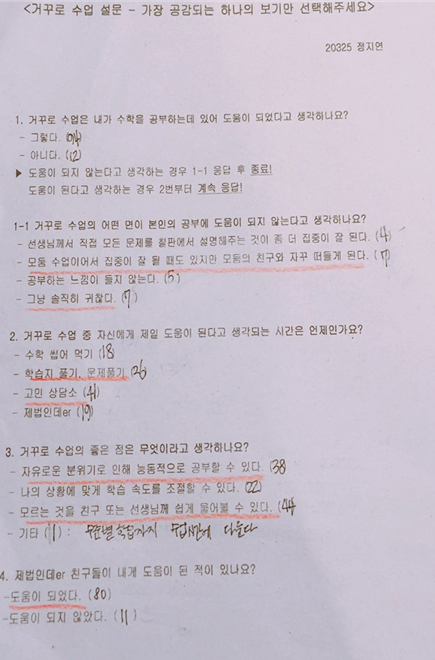 <거꾸로 수업 설문 - 가장 공감되는 하나의 보기만 선택해주세요>
20325 정지연
1. 거꾸로 수업은 내가 수학을 공부하는데 있어 도움이 되었다고 생각하나요?
- 그렇다. (94)
- 아니다. (12)
▶ 도움이 되지 않는다고 생각하는 경우 1-1 응답 후 종료!
도움이 된다고 생각하는 경우 2번부터 계속 응답!
1-1 거꾸로 수업의 어떤 면이 본인의 공부에 도움이 되지 않는다고 생각하나요?
- 선생님께서 직접 모든 문제를 칠판에서 설명해주는 것이 좀 더 집중이 잘 된다. (4)
- 모둠 수업이어서 집중이 잘 될 때도 있지만 모둠의 친구와 자꾸 떠들게 된다. (7)
- 공부하는 느낌이 들지 않는다. (5)
- 그냥 솔직히 귀찮다. (7)
2. 거꾸로 수업 중 자신에게 제일 도움이 된다고 생각되는 시간은 언제인가요?
- 수학 씹어 먹기 (18)
- 학습지 풀기, 문제풀기 (26)
- 고민 상담소 (41)
- 제법인데er (19)
3. 거꾸로 수업의 좋은 점은 무엇이라고 생각하나요?
- 자유로운 분위기로 인해 능동적으로 공부할 수 있다. (38
- 나의 상황에 맞게 학습 속도를 조절할 수 있다. (22)
- 모르는 것을 친구 또는 선생님께 쉽게 물어볼 수 있다. (44
- 기타 (11) :
4. 제법인데er 친구들이 내게 도움이 된 적이 있나요?
-도움이 되었다. (80)
-도움이 되지 않았다. (11)